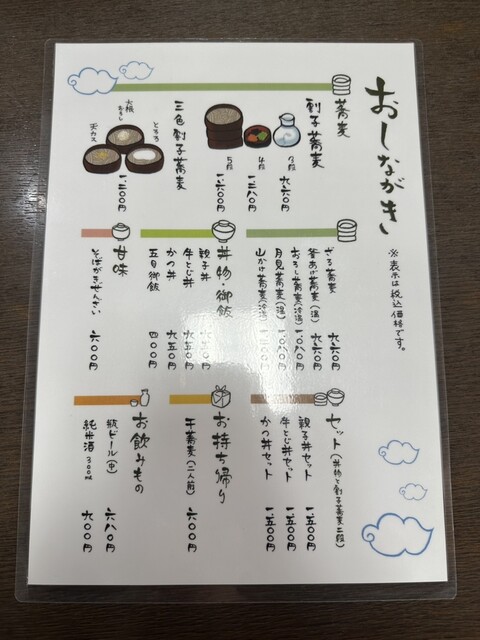 おしながき
※表示は税込価格です。
蕎麦
割子蕎麦
3段 九六〇円
4段 一、二八〇円
5段 一、六〇〇円
三色割子蕎麦
大根おろし
とろろ
天カス
一、二〇〇円
ざる蕎麦 九六〇円
釜あげ蕎麦(温) 九六〇円
おろし蕎麦(冷温) 一、〇八〇円
月見蕎麦(温) 一、〇八〇円
山かけ蕎麦(冷温) 一、二八〇円
丼物・御飯
親子丼
牛とじ丼 九五〇円
かつ丼 九五〇円
五目御飯 四〇〇円
甘味
そばがきぜんざい 六〇〇円
セット(丼物と割子蕎麦二段)
親子丼セット 一、五〇〇円
牛とじ丼セット 一、五〇〇円
かつ丼セット 一、五〇〇円
お持ち帰り
干蕎麦(二人前) 六〇〇円
お飲みもの
瓶ビール(中) 六八〇円
純米酒300ml 九〇〇円